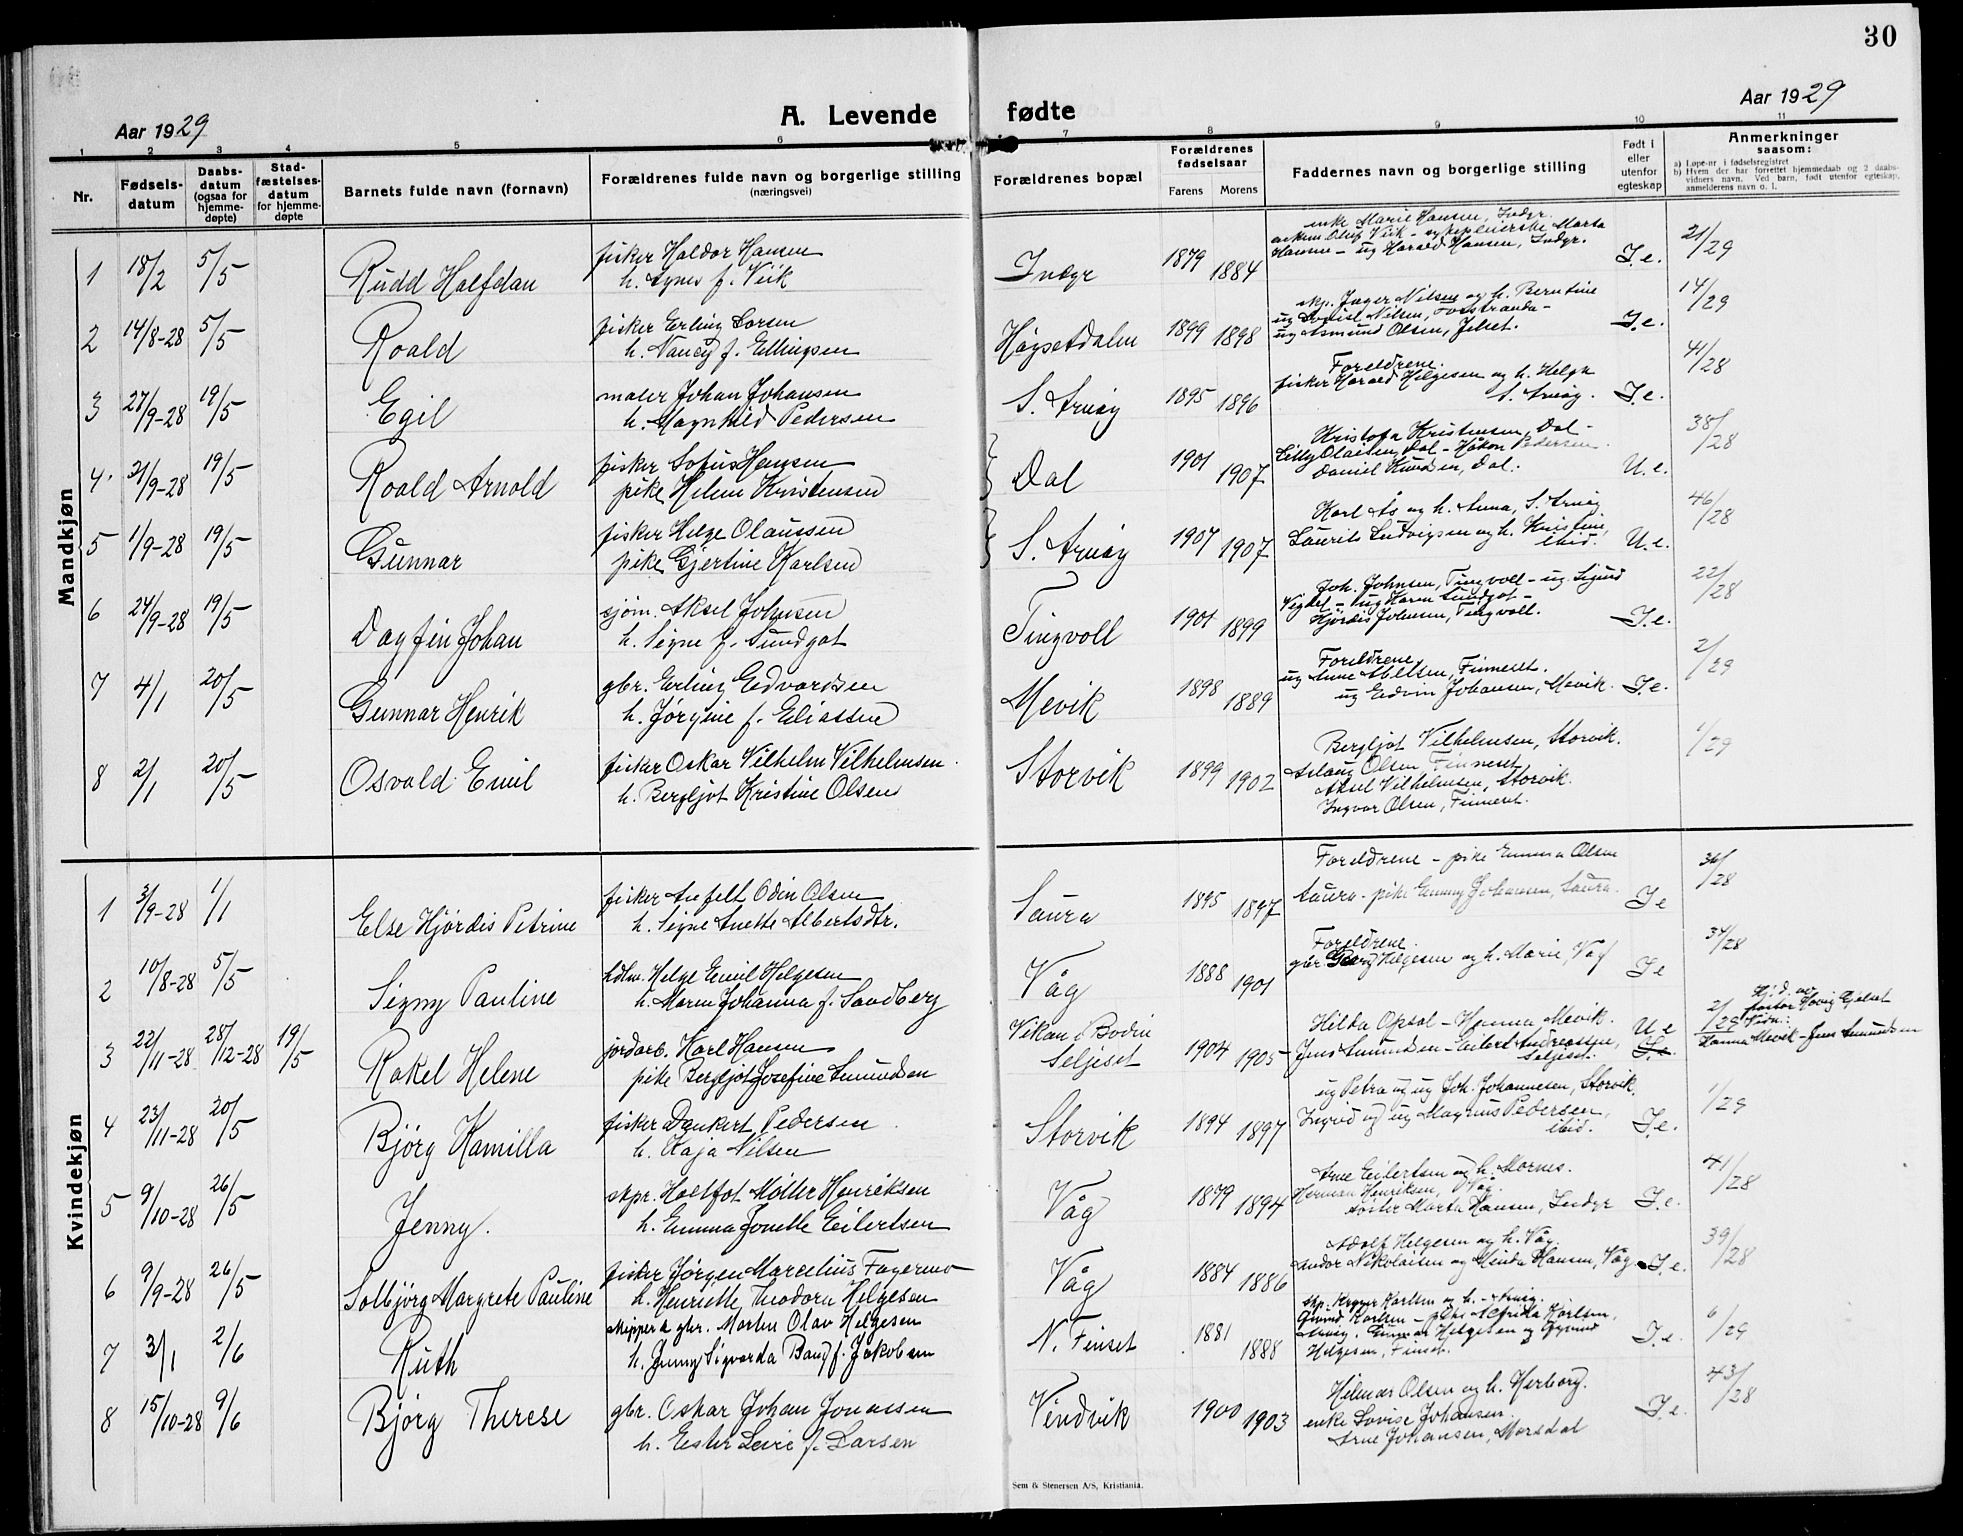 30
Aar 1929
A. Levende fødte
Aar 1929
1 2 3 4 5 6 7 8 9 10 11
Nr.
Fødsels-
datum
Daabs-
datum
(ogsaa for
hjemme-
døpte)
Stad-
fæstelses-
datum
for hjemme-
døpte
Barnets fulde navn (fornavn)
Forældrenes fulde navn og borgerlige stilling
(næringsvei)
Forældrenes bopæl
Forældrenes
fødselsaar
Farens Morens
Faddernes navn og borgerlige stilling
Født i
eller
utenfor
egteskap
Anmerkninger
saasom:
a) Løpe-nr. i fødselsregistret
b) Hvem der har forrettet hjemmedaab og 2 daabs-
vidners navn. Ved barn, født utenfor egteskap,
anmelderens navn o. l.
Mandkjøn
1 18/2 5/5 Rudd Halfdan
fisker Haldor Hansen
h. Agnes f. Vik
Indyr 1879 1884
enke Marie Hansen, Indyr.
Hansen – ug Harald Hansen, Indyr.
I.e. 21/29
2 14/8-28 5/5 Roald
fisker Erling Larsen
h. Nancy f. Ellingsen
Høgsetdalen 1899 1898
skp. Inger Nilsen og h. Berntine
ug Lovise Nilsen,
ug Asmund Olsen, Jelset.
I.e. 14/29
3 27/9-28 19/5 Egil
maler Johan Johansen
h. Magnhild Pedersen
S. Arnøy 1895 1896
Foreldrene.
fisker Harald Helgesen og h. Helga
S. Arnøy.
I.e. 41/28
4. 21/9-28 19/5 Roald Arnold
fisker Sofus Hansen
pike Helene Kristensen
Dal 1901 1907
Kristofa Kristensen, Dal –
Lilly Olaisen, Dal – Håkon Pedersen
Daniel Knudsen, Dal.
U.e. 38/28
5 1/9-28 19/5 Gunnar
fisker Helge Olaussen
pike Gjertine Karlsen
S. Arnøy 1907 1907
Karl Ås og h. Anna, S. Arnøy
Laurits Ludvigsen og h. Kristine,
ibid.
U.e. 46/28
6 24/9-28 19/5 Dagfin Johan
sjøm. Aksel Johnsen
h. Signe f. Sundgot
Tingvoll 1901 1899
Joh. Johnsen, Tingvoll – ug Sigurd
ug Karen Sundgot –
Hjørdis Johnsen, Tingvoll.
I.e. 22/28
7 4/1 20/5 Gunnar Henrik
gbr. Erling Edvardsen
h. Jørgine f. Eliassen
Mevik 1898 1889
Foreldrene
ug Anne Abelsen, Finneset.
ug Edvin Johansen, Mevik.
I.e. 2/29
8 2/1 20/5 Osvald Emil
fisker Oskar Vilhelm Vilhelmsen.
h. Bergljot Kristine Olsen
Storvik 1899 1902
Bergljot Vilhelmsen, Storvik.
Aslaug Olsen Finneset.
Aksel Vilhelmsen, Storvik.
Ingvar Olsen, Finneset.
1/29
Kvindekjøn
1 3/9-28 1/1 Else Hjørdis Petrine
fisker Anfelt Odin Olsen
h. Signe Anette Albertsdtr.
Saura 1895 1897
Foreldrene – pike Emma Olsen
Saura – pike Emmy Johansen, Saura.
I.e 36/28
2 10/8-28 5/5 Signy Pauline
hdlm. Helge Emil Helgesen
h. Maren Johanna f. Sandberg
Våg 1888 1901
Foreldrene.
gbr Georg Helgesen og h. Marie, Våg
I.e 34/28
3 22/11-28 28/12-28 19/5 Rakel Helene
jordarb. Karl Hansen
pike Bergljot Josefine Amundsen
Vikan i Bodin
Seljeset
1904 1905
Hilda Opsal – Hanna Mevik.
Jens Amundsen – Eilert Andreassen,
Seljeset.
U e
I.e.
2/29
Hj.d. av
Vidn.:
Hanna Mevik – Jens Amundsen
4 23/11-28 20/5 Bjørg Kamilla
fisker Dankert Pedersen
h. Kaja Nilsen
Storvik 1894 1897
ug Petra og ug Joh. Johannesen, Storvik.
Ingrid og ug Magnus Pedersen,
ibid.
I.e. 1/29
5 9/10-28 26/5 Jenny.
skpr. Halfot Møller Henriksen
h. Emma Jonette Eilertsen
Våg 1879 1894
Arne Eilertsen og h. Mornes.
Herman Henriksen, Våg.
søster Marta Hansen, Indyr
I.e. 41/28
6 9/9-28 26/5 Solbjørg Margrete Pauline
fisker Jørgen Marcelius Fagermo
h. Henriette Teodora Helgesen
Våg 1884 1886
Adolf Helgesen og h. Våg.
Andor Nikolaisen og Minda Hansen, Våg
I.e. 39/28
7 3/1 2/6 Ruth
skipper & gbr. Morten Olav Helgesen
h. Jenny Sigvarda Bang f. Jakobsen
N. Finset 1881 1888
Helgesen, Finset.
I.e. 6/29
8 15/10-28 9/6 Bjørg Therese
gbr. Oskar Johan Jonassen
h. Ester Levie f. Larsen
Vindvik 1900 1903
Hilmar Olsen og h. Herborg.
enke Lovise Johansen.
Arne Johansen, Morsdal
I.e. 43/28
Sem & Stenersen A/S, Kristiania.